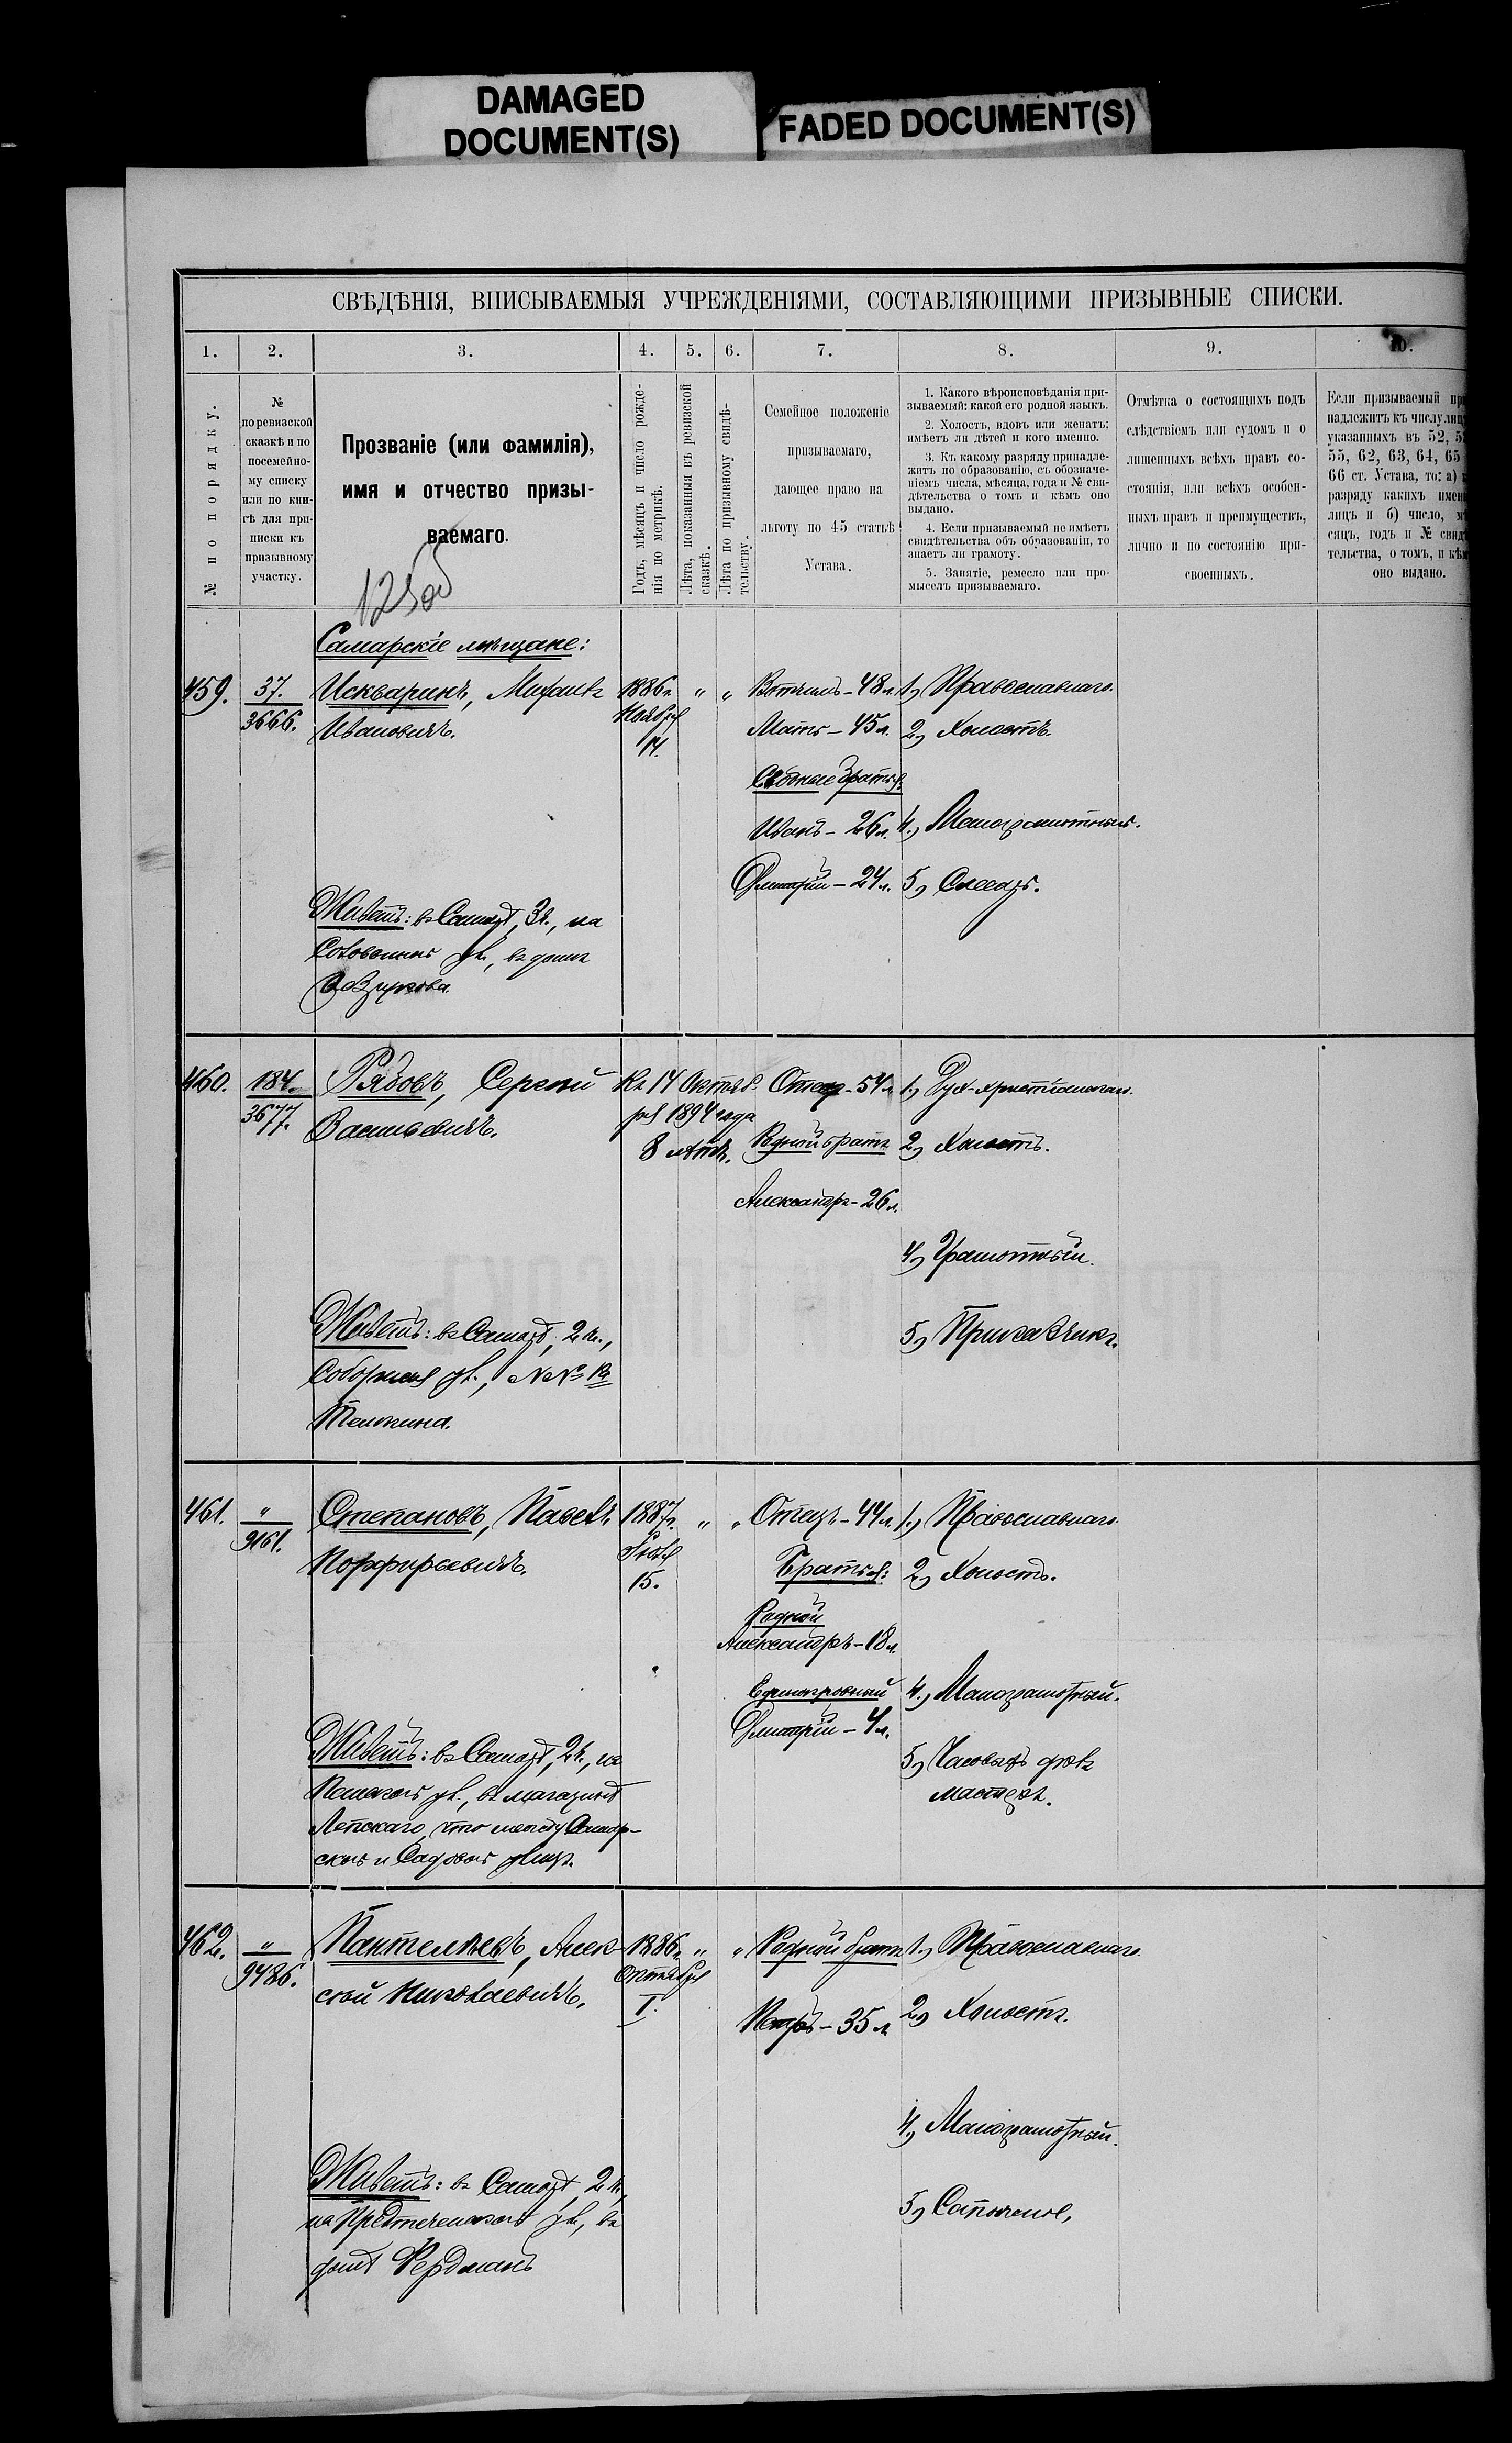 DAMAGED
DOCUMENT(S)
FADED DOCUMENT(S)
СВѢДѢНІЯ, ВПИСЫВАЕМЫЯ УЧРЕЖДЕНІЯМИ, СОСТАВЛЯЮЩИМИ ПРИЗЫВНЫЕ СПИСКИ.
1. 2. 3. 4. 5. 6. 7. 8. 9. 10.
№ по порядку.
№
по ревизской
сказкѣ и по
посемейно-
му списку
или по кни-
гѣ для при-
писки къ
призывному
участку.
Прозваніе (или фамилія),
имя и отчество призы-
ваемаго.
Годъ, мѣсяцъ и число рожде-
нія по метрикѣ.
Лѣта, показанныя въ ревизской
сказкѣ.
Лѣта по призывному свидѣ-
тельству.
Семейное положеніе
призываемаго,
дающее право на
льготу по 45 статьѣ
Устава.
1. Какого вѣроисповѣданія при-
зываемый: какой его родной языкъ.
2. Холостъ, вдовъ или женатъ:
имѣетъ ли дѣтей и кого именно.
3. Къ какому разряду принадле-
житъ по образованію, съ обозначе-
ніемъ числа, мѣсяца, года и № сви-
дѣтельства о томъ и кѣмъ оно
выдано.
4. Если призываемый не имѣетъ
свидѣтельства объ образованіи, то
знаетъ ли грамоту.
5. Занятіе, ремесло или про-
мыселъ призываемаго.
Отмѣтка о состоящихъ подъ
слѣдствіемъ или судомъ и о
лишенныхъ всѣхъ правъ со-
стоянія, или всѣхъ особен-
ныхъ правъ и преимуществъ,
лично и по состоянію при-
своенныхъ.
Если призываемый пр
надлежитъ къ числу лиц
указанныхъ въ 52, 5
55, 62, 63, 64, 65
66 ст. Устава, то: а)
разряду какихъ имен
лицъ и б) число, м
сяцъ, годъ и № свид
тельства, о томъ, и кѣм
оно выдано.
Самарскіе мѣщане:
459. 37.
3666.
Искваринъ, Михаилъ
Ивановичъ.
1886 г.
Ноября
14.
" "
Вотчимъ - 48 л.
Мать - 45 л.
Сводные братья:
Иванъ - 26 л.
Дмитрій - 24 л.
1, Православнаго.
2, Холостъ.
4, Малограмотный.
5, Слесарь.
Живетъ: въ Самарѣ, 3 ч., на
ул., въ домѣ
460. 184.
3677.
Рябовъ, Сергѣй
Васильевичъ.
Къ 14 Октяб-
ря 1894 года
8 лѣтъ.
Отецъ - 54 л.
Родной братъ
Александръ - 26 л.
1, Дух.-христіанскаго.
2, Холостъ.
4, Грамотный.
5, Приказчикъ.
Живетъ: въ Самарѣ, 2 ч.,
Соборная ул., №№ ра
461. "
9161.
Степановъ, Павелъ
Порфирьевичъ.
1887 г.
Іюля
15.
" "
Отецъ - 44 л.
Братья:
Родной
Александръ - 18 л.
Единокровный
Дмитрій - 4 л.
1, Православнаго.
2, Холостъ.
4, Малограмотный.
5, Часовыхъ дѣлъ
мастеръ.
Живетъ: въ Самарѣ, 2 ч., на
ул., въ магазинѣ
что между Самар-
ской и Садовой улиц.
462. "
9486.
Пантелѣевъ, Алек-
сѣй Николаевичъ.
1886 г.
Октября
1.
" "
Родной братъ
Петръ - 35 л.
1, Православнаго.
2, Холостъ.
4, Малограмотный.
5, Сапожникъ.
Живетъ: въ Самарѣ, 2 ч.,
на Предтеченской ул., въ
домѣ Фердманъ